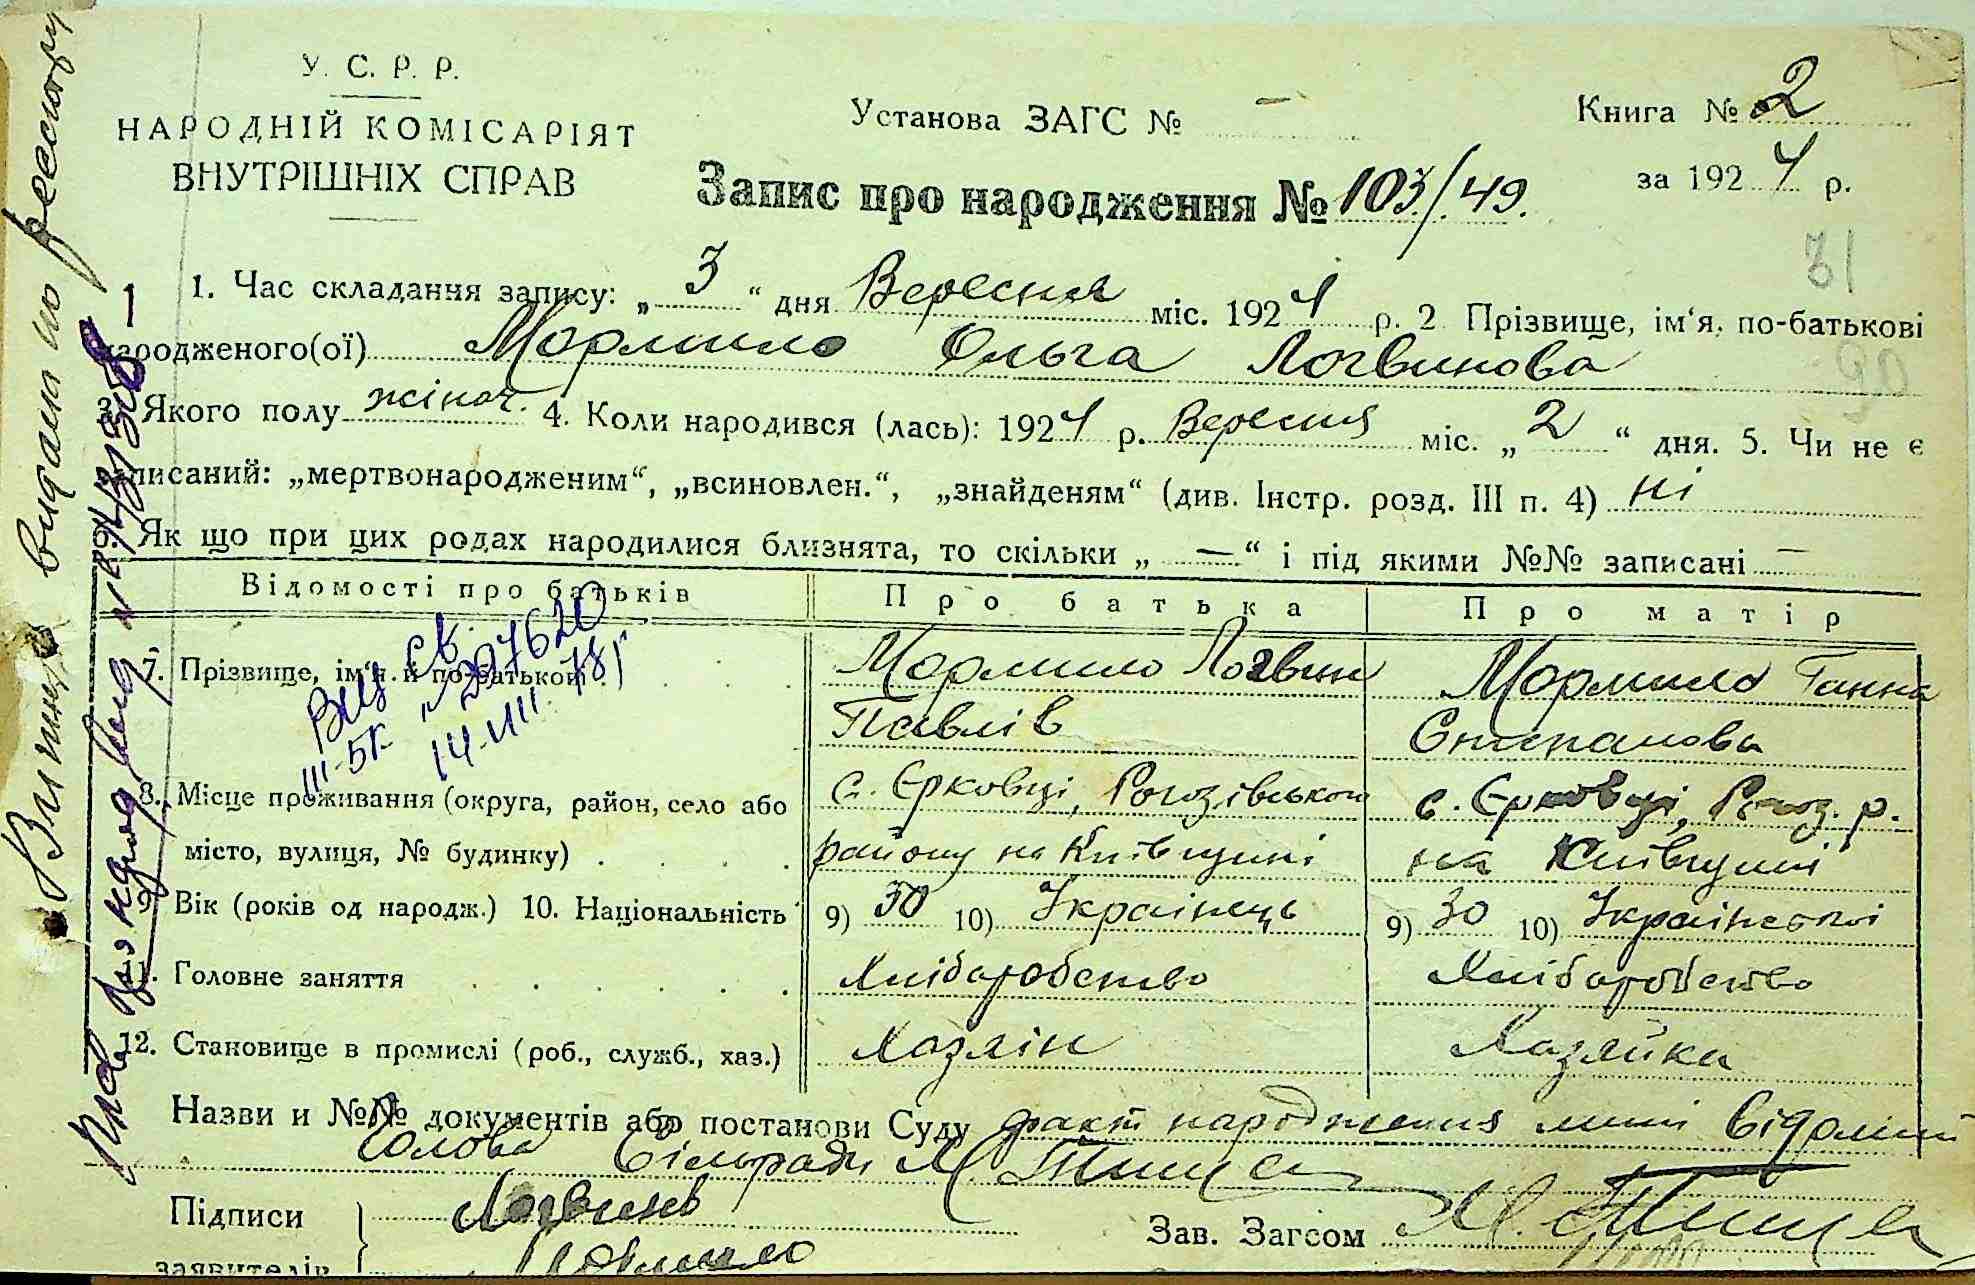 У. С. Р. Р.
НАРОДНІЙ КОМІСАРІЯТ
ВНУТРІШНІХ СПРАВ
Установа ЗАГС № —
Книга № 2
за 1924 р.
Запис про народження № 103/49.
31
90
1. Час складання запису: „ 3 “ дня Вересня міс. 1924 р. 2 Прізвище, ім‘я, по-батькові
народженого(ої) Мормило Ольга Логвинова
3. Якого полу жіноч. 4. Коли народився (лась): 1924 р. Вересня міс. „ 2 “ дня. 5. Чи не є
записаний: „мертвонародженим“, „всиновлен.“, „знайденям“ (див. Інстр. розд. III п. 4) ні
6. Як що при цих родах народилися близнята, то скільки „ — “ і під якими №№ записані —
Відомості про батьків
Про батька
Про матір
7. Прізвище, ім‘я й по-батькові
Мормило Логвин
Павлів
Мормило Ганна
Степанова
8. Місце проживання (округа, район, село або
місто, вулиця, № будинку)
с. Єрковці, Рогозівського
району на Київщині
с. Єрковці, Рогоз. р.
на Київщині
9. Вік (років од народж.) 10. Національність
9) 30 10) Українець
9) 30 10) Української
11. Головне заняття
Хліборобство
Хліборобство
12. Становище в промислі (роб., служб., хаз.)
Хазяїн
Хазяйка
Назви и №№ документів або постанови Суду факт народження мині відомий
Голова Сільради М.
Підписи
заявителів
Логвинь
Мормило
Зав. Загсом М.
III-БК № 207620
14.VIII.78р